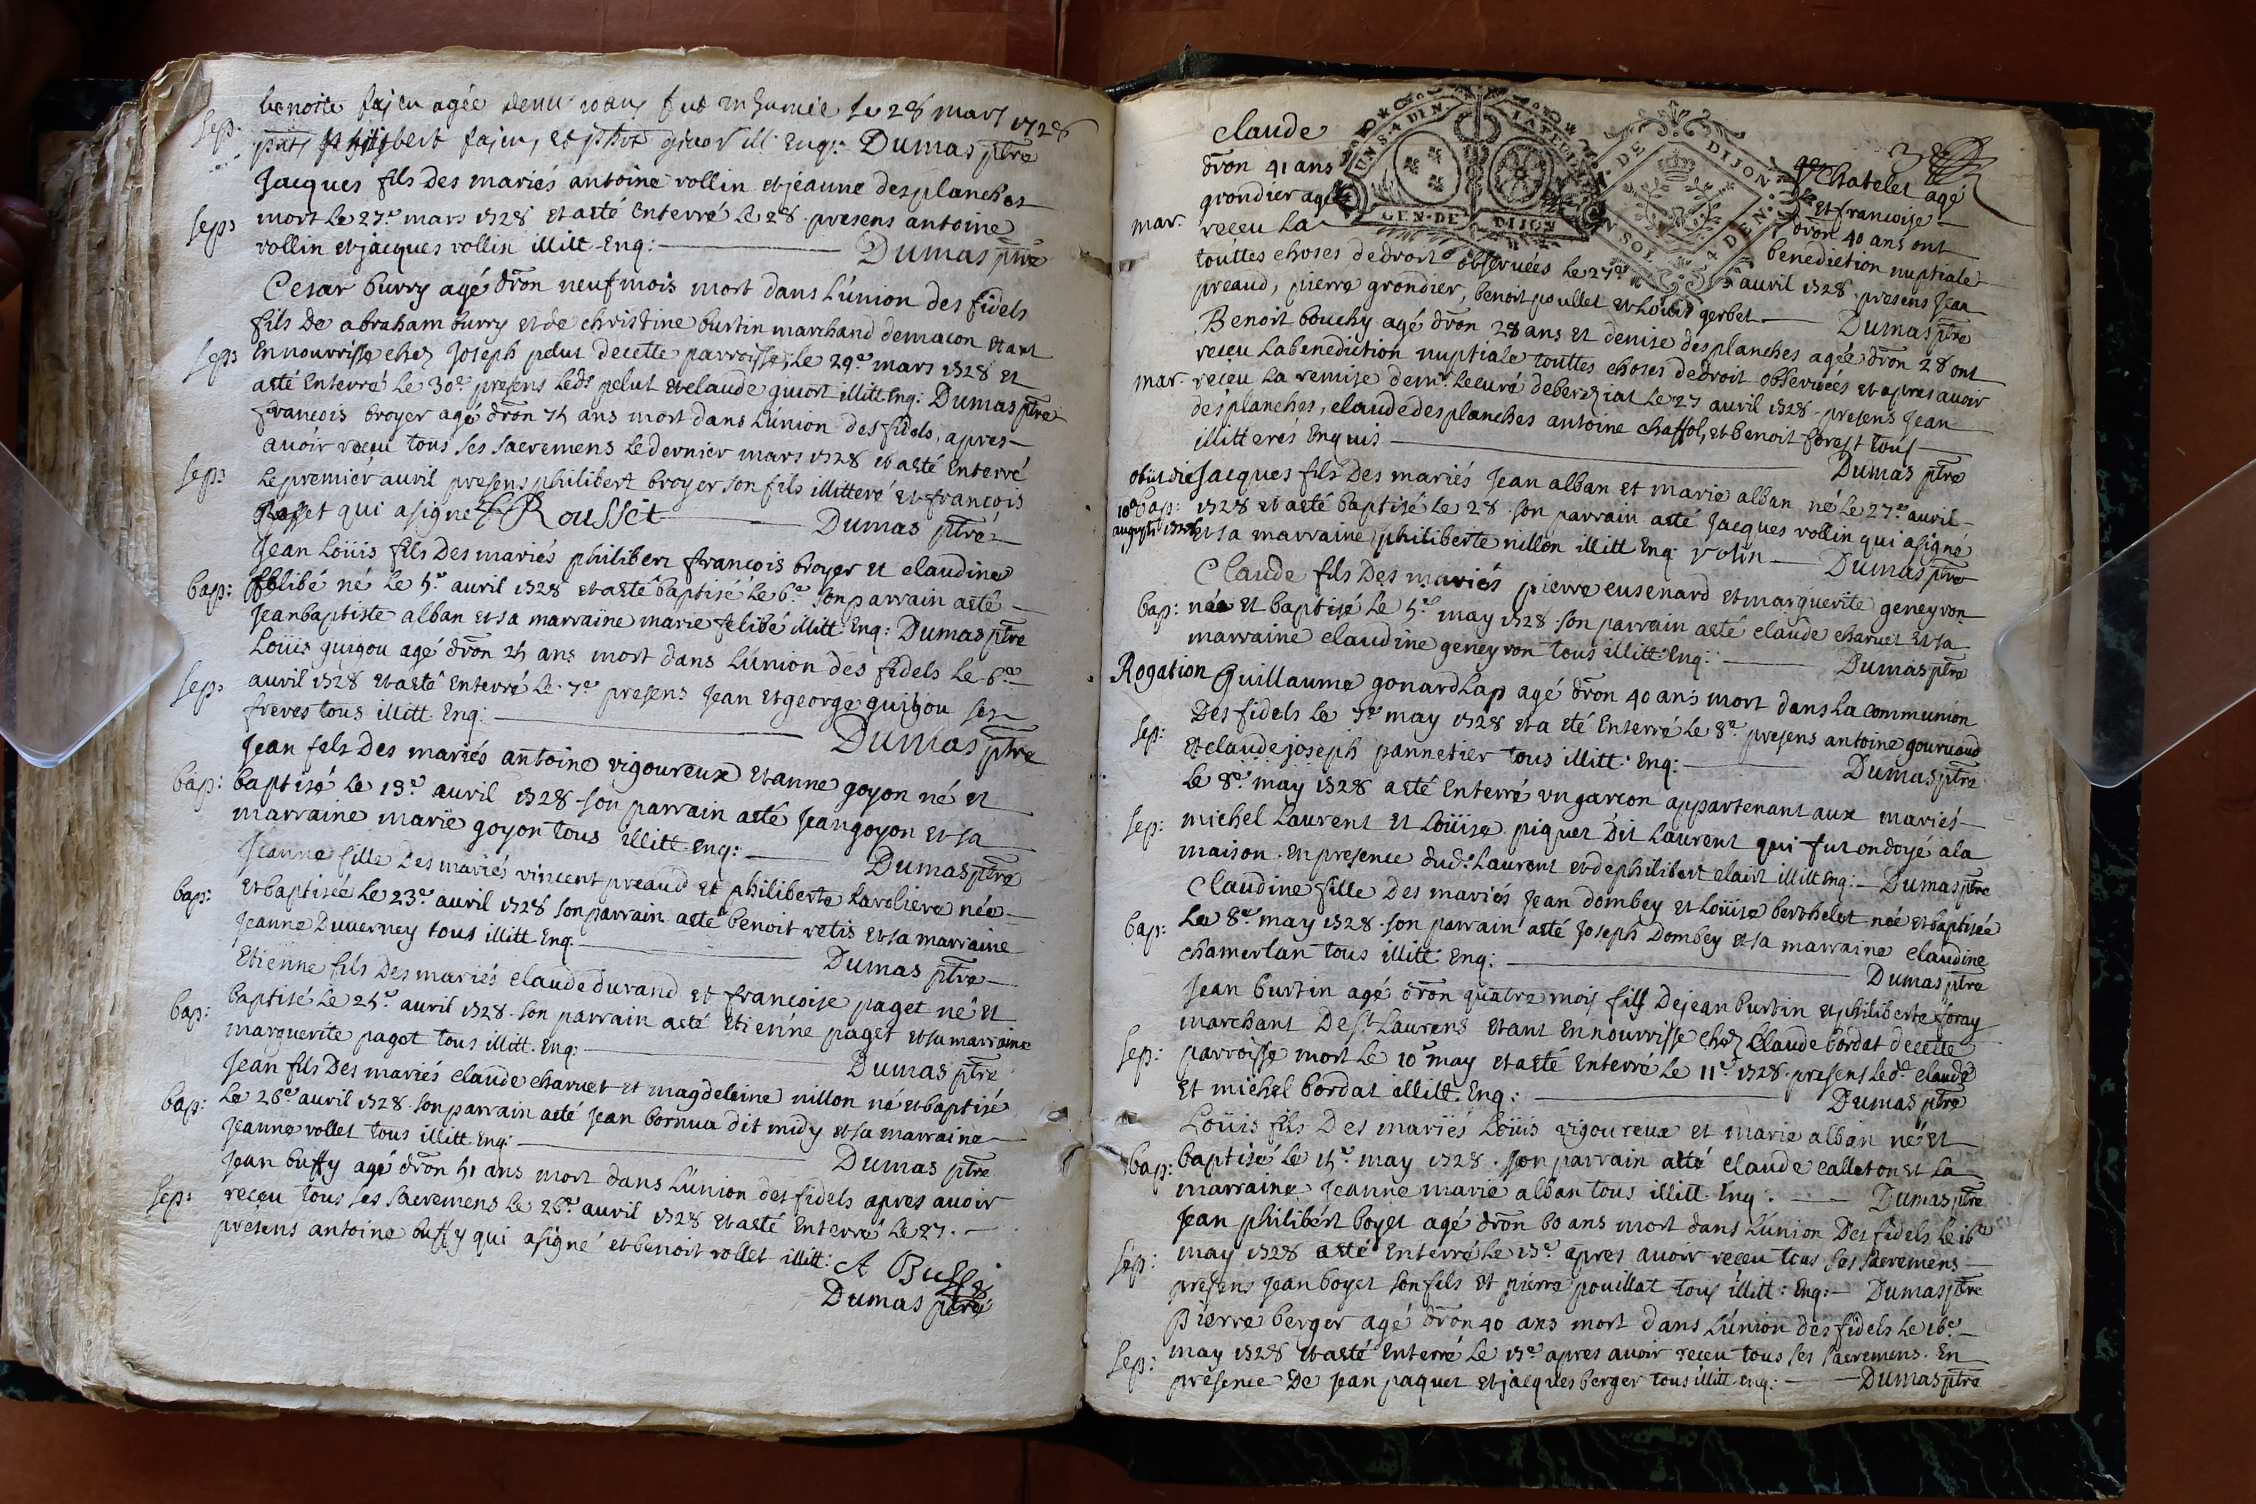 benoite fajeu agée fut inhumée le 28 mars 1728
sep.
philibert fajeu, et illi: enq: Dumas ptre
Jacques fils des mariés antoine rollin et jeanne desplanches
sep: mort le 27.e mars 1728 et a esté enterré le 28. presens antoine
rollin et jacques rollin illitt. Enq: Dumas ptre
Cesar burry agé dron neuf mois mort dans l'union des fidels
fils de abraham burry et de christine burtin marchand de macon etant
sep: en nourrisse chez Joseph pelut de cette parroisse, le 29.e mars 1728 et
a esté enterré le 30.e presens led. pelut et claude guiort illitt. Enq: Dumas ptre
francois broyer agé dron 75 ans mort dans l'union des fidels, apres
avoir receu tous ses sacremens le dernier mars 1728 et a esté enterré
sep: le premier avril presens philibert broyer son fils illitteré et francois
Rosset qui a signé Rousset Dumas ptre
Jean Loüis fils des mariés philibert francois broyer et claudine
bap: felibé né le 5.e avril 1728 et a esté baptisé le 6.e son parrain a esté
Jean baptiste alban et sa marraine marie felibé illitt. Enq: Dumas ptre
Loüis guigou agé dron 25 ans mort dans l'union des fidels le 6.e
sep: avril 1728 et a esté enterré le 7.e presens Jean et george guigou ses
freres tous illitt. Enq: Dumas ptre
Jean fils des mariés antoine vigoureux et anne goyon né et
bap: baptisé le 13.e avril 1728. son parrain a esté Jean goyon et sa
marraine marie goyon tous illitt. Enq: Dumas ptre
Jeanne fille des mariés vincent preaud et philiberte laroliere née
bap: et baptisée le 23.e avril 1728 son parrain a esté benoit retis et sa marraine
Jeanne Duverney tous illitt. Enq. Dumas ptre
Etienne fils des mariés claude durand et francoise paget né et
bap: baptisé le 25.e avril 1728. son parrain a esté Etienne paget et sa marraine
marguerite paget tous illitt. Enq: Dumas ptre
Jean fils des mariés claude charvet et magdeleine nillon né et baptisé
bap: le 26.e avril 1728. son parrain a esté Jean bornua dit midy et sa marraine
Jeanne rollet tous illitt. Enq: Dumas ptre
Jean buffy agé dron 51 ans mort dans l'union des fidels apres avoir
sep: receu tous ses sacremens le 26.e avril 1728 et a esté enterré le 27.
presens antoine buffy qui a signé et benoit rollet illitt: A Buffi
Dumas ptre
claude chatelet agé
dron 41 ans et francoise
grondier agée dron 40 ans ont
mar. receu la benediction nuptiale
UN S. 4 DEN. LA FEUILLE
GEN. DE DIJON
DE DIJON
UN SOL 4 DEN.
touttes choses de droit observées le 27.e avril 1728. presens Jean
preaud, pierre grondier, benoit poullet et Loüis gerbet Dumas ptre
Benoit bouchy agé dron 28 ans et denise desplanches agée dron 28 ont
receu la benediction nuptiale touttes choses de droit observées et apres avoir
mar. receu la remise de mr. le curé de berezíat le 27 avril 1728. presens Jean
desplanches, claude desplanches antoine chaffol, et benoit forest tous
illitterés Enquis Dumas ptre
obiit die Jacques fils des mariés Jean alban et marie alban né le 27.e avril
10.a bap: 1728 et a esté baptisé le 28. son parrain a esté Jacques rollin qui a signé
augusti 1728 et sa marraine philiberte nillon illitt Enq rolin Dumas ptre
Claude fils des mariés pierre cusenard et marguerite geneyron
bap: né et baptisé le 5.e may 1728. son parrain a esté claude charvet et sa
marraine claudine geneyron tous illitt. Enq: Dumas ptre
Rogation Guillaume gonard Lap agé dron 40 ans mort dans la communion
sep: des fidels le 7.e may 1728 et a eté enterré le 8.e presens antoine gourvaud
et claude joseph pannetier tous illitt. Enq: Dumas ptre
Le 8.e may 1728 a esté enterré un garcon appartenant aux mariés
sep: michel Laurent et Loüise piquet dit Laurent qui fut ondoyé a la
maison. En presence dud. Laurent et de philibert clair illitt Enq: Dumas ptre
Claudine fille des mariés Jean dombey et Loüise berthelet née et baptisée
bap: le 8.e may 1728. son parrain a esté Joseph Dombey et sa marraine claudine
chamerlan tous illitt. Enq: Dumas ptre
Jean burtin agé dron quatre mois fils de jean burtin et philiberte foray
marchant de St Laurens etant en nourrisse chez Claude bordat de cette
sep: parroisse mort le 10.e may et a esté enterré le 11.e 1728. presens led. claude
et michel bordat illitt. Enq: Dumas ptre
Loüis fils des mariés Loüis vigoureux et marie alban né et
bap: baptisé le 15.e may 1728. son parrain a esté claude calleton et la
marraine Jeanne marie alban tous illitt. Enq: Dumas ptre
Jean philibert boyet agé dron 60 ans mort dans l'union des fidels le 16.e
sep: may 1728 a esté enterré le 17.e apres avoir receu tous ses sacremens
presens Jean boyet son fils et pierre pouillat tous illitt: Enq: Dumas ptre
Pierre berger agé dron 40 ans mort dans l'union des fidels le 16.e
sep: may 1728 et a esté enterré le 17.e apres avoir receu tous ses sacremens. En
presence de Jean paquet et jacques berger tous illitt. enq: Dumas ptre